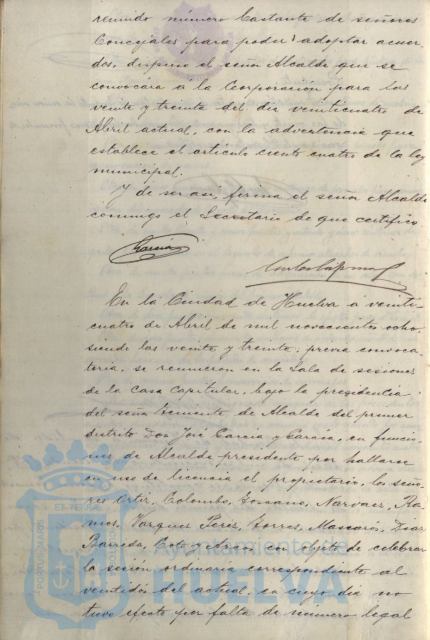 reunido número bastante de señores
Concejales para poder adoptar acuer-
dos, dispuso el señor Alcalde que se
convocara á la Corporación para las
veinte y treinta del dia veinticuatro de
Abril actual, con la advertencia que
establece el artículo ciento cuatro de la ley
municipal.
Y de ser así, firma el señor Alcalde
conmigo el Secretario de que certifico
García
En la Ciudad de Huelva a veinti
cuatro de Abril de mil novecientos ocho,
siendo las veinte y treinta, previa convoca-
toria, se reunieron en la Sala de sesiones
de la Casa Capitular, bajo la presidencia
del señor Teniente de Alcalde del primer
distrito Don José García y García, en funcio-
nes de Alcalde presidente por hallarse
en uso de licencia el propietario, los seño-
res Ortiz, Colombo, Narvaez, Ra-
mos, Vazquez Perez, Torres, Mascarós, Diaz
Barreda, con objeto de celebrar
la sesión ordinaria correspondiente al
veintidós del actual, en cuyo dia no
tuvo efecto por falta de número legal
Ayuntamiento de
HUELVA